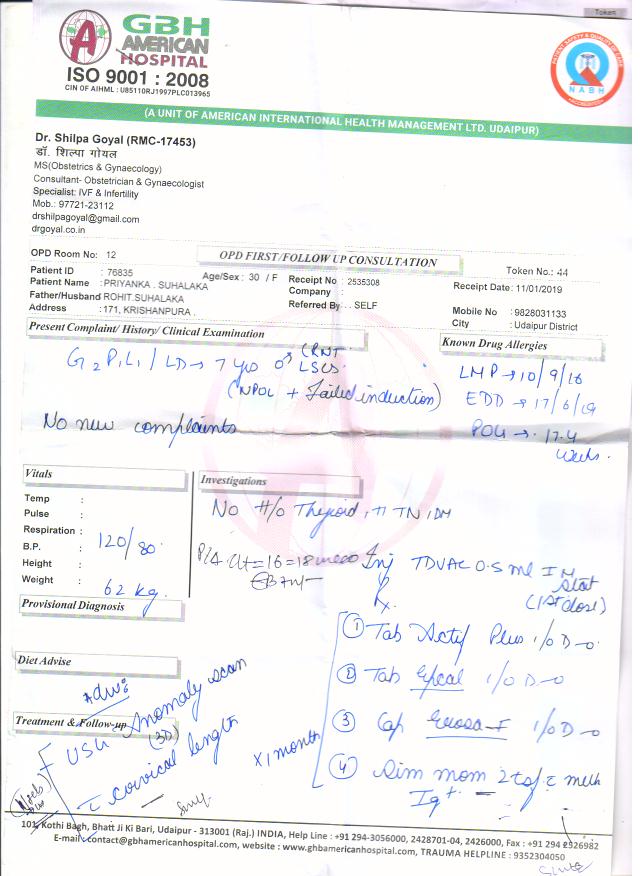 Token
GBH
AMERICAN
HOSPITAL
ISO 9001 : 2008
CIN OF AIHML : U85110RJ1997PLC013965
PATIENT SAFETY & QUALITY OF CARE
NABH
(A UNIT OF AMERICAN INTERNATIONAL HEALTH MANAGEMENT LTD. UDAIPUR)
Dr. Shilpa Goyal (RMC-17453)
डॉ. शिल्पा गोयल
MS(Obstetrics & Gynaecology)
Consultant- Obstetrician & Gynaecologist
Specialist: IVF & Infertility
Mob.: 97721-23112
drshilpagoyal@gmail.com
drgoyal.co.in
OPD Room No: 12
OPD FIRST/FOLLOW UP CONSULTATION
Token No.: 44
Patient ID : 76835
Age/Sex : 30 / F
Receipt No : 2535308
Receipt Date: 11/01/2019
Patient Name : PRIYANKA . SUHALAKA
Company :
Father/Husband ROHIT.SUHALAKA
Referred By : . SELF
Mobile No : 9828031133
Address : 171, KRISHANPURA .
City : Udaipur District
Present Complaint/ History/ Clinical Examination
Known Drug Allergies
G2P1L1 / LD → 7 yrs ♂ LSCS
(NPOL + Failed induction)
LMP → 10/9/18
EDD → 17/6/19
POG → 17.4 weeks.
No new complaints
Vitals
Investigations
Temp :
Pulse :
Respiration :
B.P. : 120/80
Height :
Weight : 62 kg.
No H/o Thyroid, HTN, DM
P/A ut = 16 = 18 weeks
Inj TDVAC 0.5 ml IM Stat
(1st dose)
Rx
Provisional Diagnosis
① Tab Actif Plus 1/0 D
Diet Advise
② Tab 1/0 D
Treatment & Follow-up
Adv:
USG Anomaly scan
(3D)
c cervical length
③ Cap 1/0 D
x 1 month
④ Sim mom 2 tsf c milk
101, Kothi Bagh, Bhatt Ji Ki Bari, Udaipur - 313001 (Raj.) INDIA, Help Line : +91 294-3056000, 2428701-04, 2426000, Fax : +91 294 2526982
E-mail : contact@gbhamericanhospital.com, website : www.gbhamericanhospital.com, TRAUMA HELPLINE : 9352304050